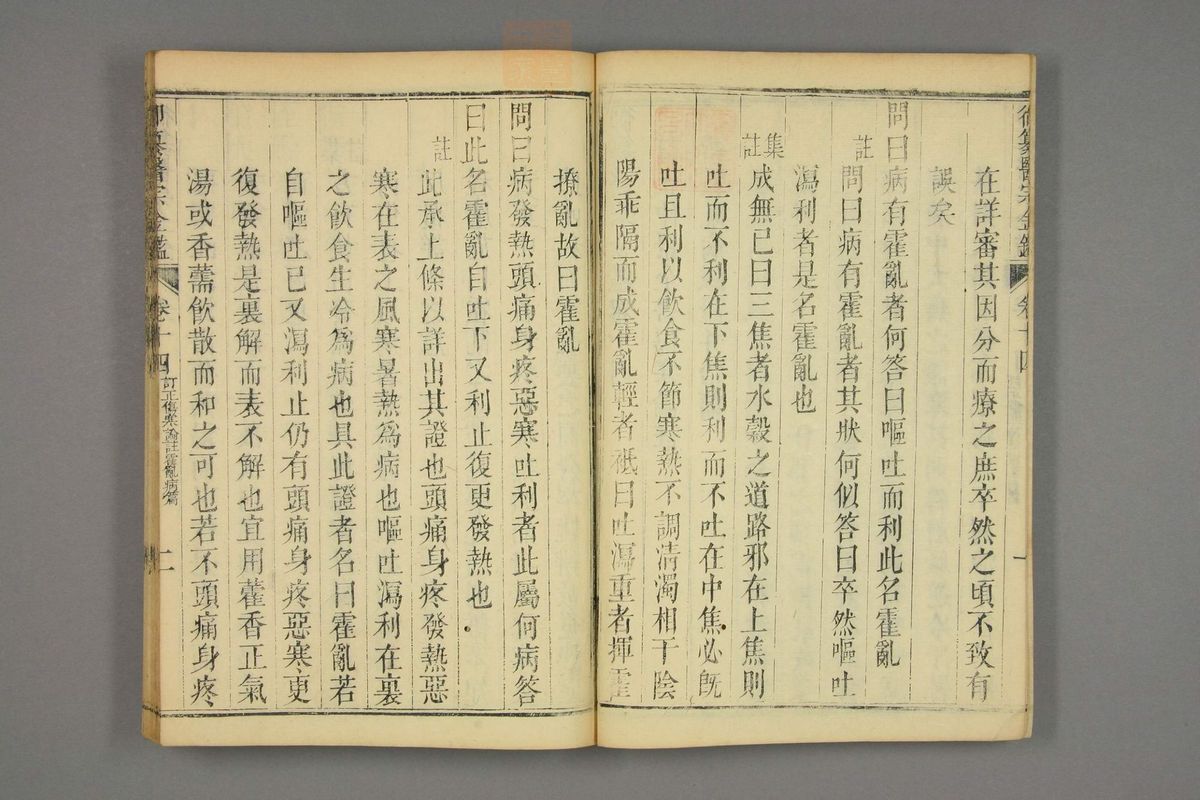 御纂醫宗金鑑 卷十四 一
在詳審其因分而療之庶卒然之頃不致有
誤矣
問曰病有霍亂者何答曰嘔吐而利此名霍亂
註 問曰病有霍亂者其狀何似答曰卒然嘔吐
瀉利者是名霍亂也
集註 成無已曰三焦者水穀之道路邪在上焦則
吐而不利在下焦則利而不吐在中焦必旣
吐且利以飲食不節寒熱不調清濁相干陰
陽乖隔而成霍亂輕者祇曰吐瀉重者揮霍
撩亂故曰霍亂
問曰病發熱頭痛身疼惡寒吐利者此屬何病答
曰此名霍亂自吐下又利止復更發熱也
註 此承上條以詳出其證也頭痛身疼發熱惡
寒在表之風寒暑熱爲病也嘔吐瀉利在裏
之飲食生冷爲病也具此證者名曰霍亂若
自嘔吐已又瀉利止仍有頭痛身疼惡寒更
復發熱是裏解而表不解也宜用藿香正氣
湯或香薷飲散而和之可也若不頭痛身疼
御纂醫宗金鑑 卷十四 訂正傷寒論註霍亂病篇 二